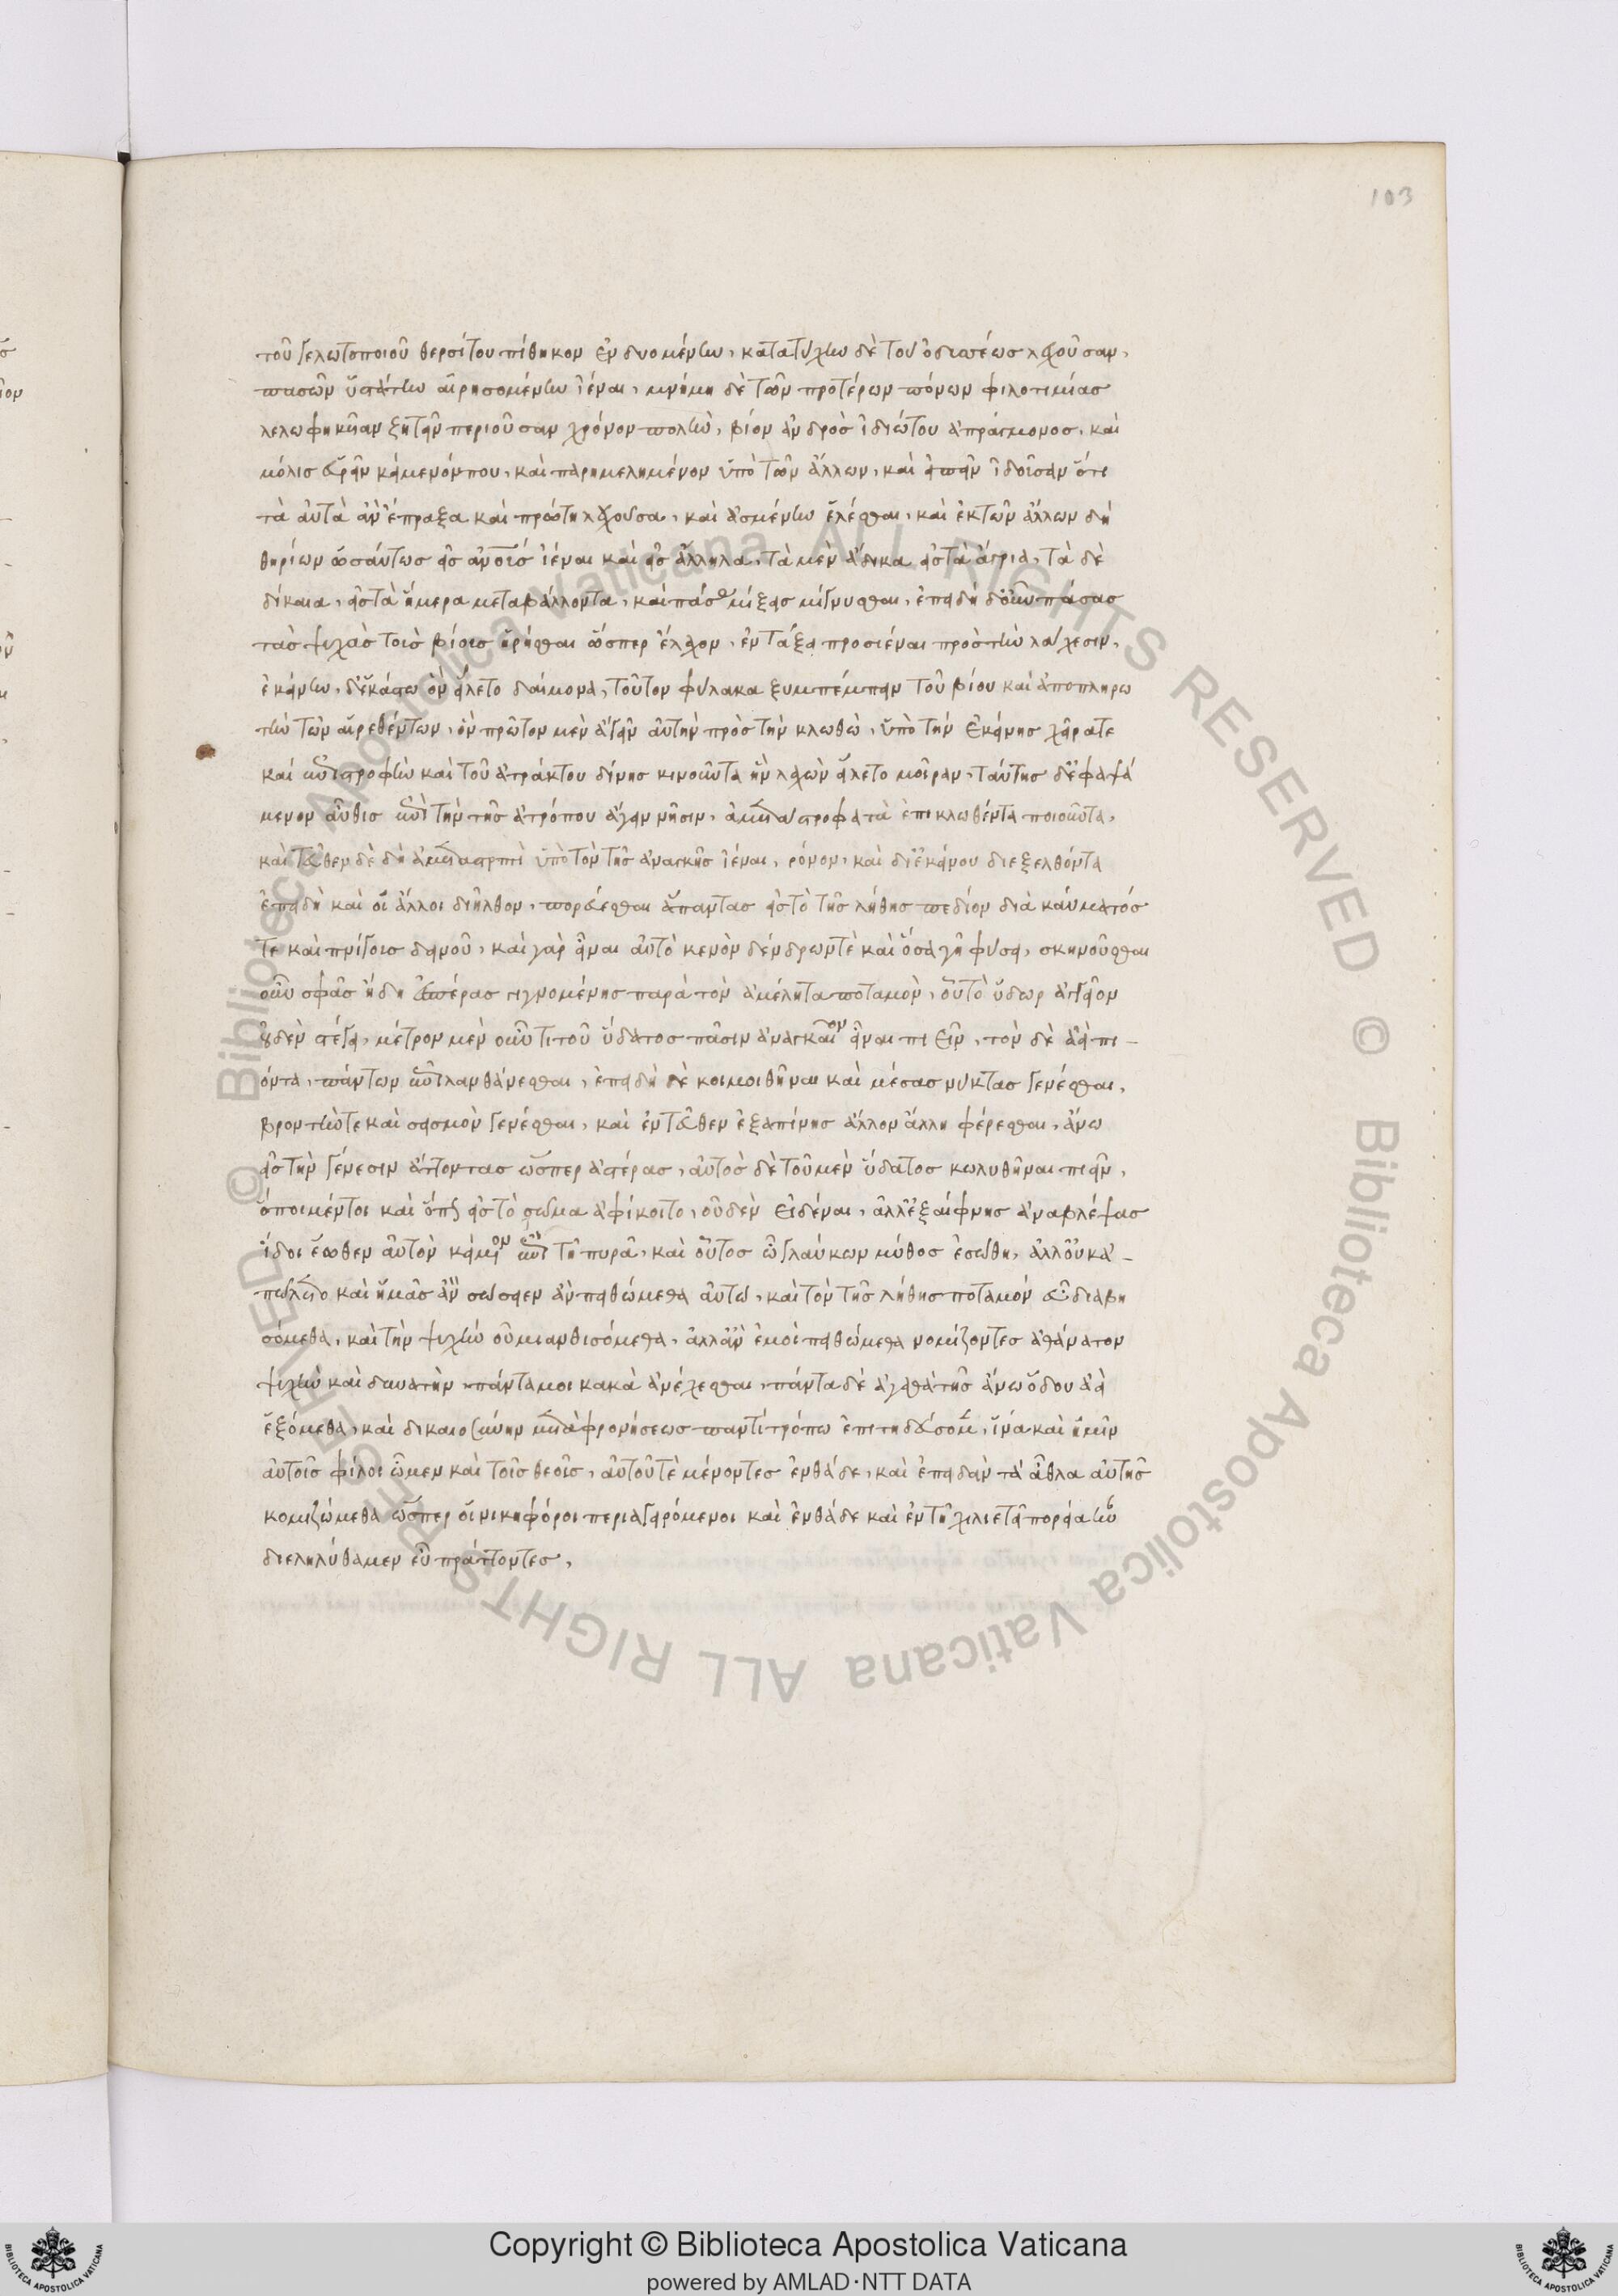 103
τοῦ γελωτοποιοῦ θερσίτου πίθηκον ἐνδυομένην, κατατύχην δὲ τοῦ ὀδυσσέωσ λαχοῦσαν,
πασῶν ὑστάτην αἱρησομένην ἰέναι, μνήμη δὲ τῶν προτέρων πόνων φιλοτιμίασ
λελωφηκῆαν ζητεῖν περιοῦσαν χρόνον πολὺν, βίον ἀνδρὸσ ἰδιώτου ἀπράγμονοσ, καὶ
μόλισ εὑρεῖν κείμενόν που, καὶ παρημελημένον ὑπὸ τῶν ἄλλων, καὶ εἰπεῖν ἰδοῖσαν ὅτι
τὰ αὐτὰ ἂν ἔπραξα καὶ πρώτη λαχοῦσα, καὶ ἀσμένην ἑλέσθαι, καὶ ἐκ τῶν ἄλλων δὴ
θηρίων ὡσαύτωσ εἰσ ἀνουσ ἰέναι καὶ εἰσ ἄλληλα, τὰ μὲν ἄδικα εἰσ τὰ ἄγρια, τὰ δὲ
δίκαια, εἰσ τὰ ἥμερα μεταβάλλοντα, καὶ πάσασ μίξεισ μίγνυσθαι, ἐπειδὴ δοὖν πάσασ
τὰσ ψυχὰσ τοὺσ βίουσ ᾑρῆσθαι ὥσπερ ἔλαχον, ἐν τάξει προσιέναι πρὸσ τὴν λάχεσιν,
ἐκείνην, δἑκάστω ὃν εἵλετο δαίμονα, τοῦτον φύλακα ξυμπέμπειν τοῦ βίου καὶ ἀποπληρω
τὴν τῶν αἱρεθέντων, ὃν πρῶτον μὲν ἄγειν αὐτὴν πρὸσ τὴν κλωθὼ, ὑπὸ τὴν ἐκείνησ χεῖρα τε
καὶ ἐπιστροφὴν καὶ τοῦ ἀτράκτου δίνησ κυροῦντα ἣν λαχὼν εἵλετο μοῖραν, ταύτησ δἐφαψά
μενον αὖθισ ἐπὶ τὴν τῆσ ἀτρόπου ἄγειν νῆσιν, ἀμετάστροφα τὰ ἐπικλωθέντα ποιοῦντα,
καὶ τεῦθεν δὲ δὴ ἀμεταστρεπτὶ ὑπὸ τὸν τῆσ ἀνάγκησ ἰέναι, ρόνον, καὶ διἐκείνου διεξελθόντα
ἐπειδὴ καὶ οἱ ἄλλοι διῆλθον, πορεύεσθαι ἅπαντασ εἰσ τὸ τῆσ λήθησ πεδίον διὰ καύματόσ
τε καὶ πνίγουσ δεινοῦ, καὶ γὰρ εἶναι αὐτὸ κενὸν δένδρων τὲ καὶ ὅσα γῆ φύσει, σκηνοῦσθαι
οὖν σφᾶσ ἤδη ἑσπέρασ γιγνομένησ παρὰ τὸν ἀμέλητα ποταμὸν, οὗ τὸ ὕδωρ ἀγγεῖον
οὐδὲν στέγει, μέτρον μὲν οὖν τι τοῦ ὕδατοσ πᾶσιν ἀναγκαῖον εἶναι πιεῖν, τὸν δὲ ἀεὶ πι-
όντα, πάντων ἐπιλανθάνεσθαι, ἐπειδὴ δὲ κοιμοιθῆναι καὶ μέσασ νύκτασ γενέσθαι,
βροντὴν τε καὶ σεισμὸν γενέσθαι, καὶ ἐντεῦθεν ἐξαπίνησ ἄλλον ἄλλη φέρεσθαι, ἄνω
εἰσ τὴν γένεσιν ἄττοντασ ὥσπερ ἀστέρασ, αὐτὸσ δὲ τοῦ μὲν ὕδατοσ κωλυθῆναι πιεῖν,
ὅποι μέντοι καὶ ὅπησ εἰσ τὸ σῶμα ἀφίκοιτο, οὐδὲν εἰδέναι, ἀλλἐξαίφνησ ἀναβλέψασ
ἴδοι ἕωθεν αὐτὸν κείμενον ἐπὶ τῆ πυρᾶ, καὶ οὕτοσ ὦ γλαύκων μύθοσ ἐσώθη, ἀλλοὐκα-
πώλετο καὶ ἡμᾶσ ἂν σώσειεν ἂν πειθώμεθα αὐτω, καὶ τὸν τῆσ λήθησ ποταμὸν εὖ διαβη
σόμεθα, καὶ τὴν ψυχὴν οὐ μιανθισόμεθα, ἀλλἂν ἐμοὶ πειθώμεθα νομίζοντεσ ἀθάνατον
ψυχὴν καὶ δυνατὴν πάντα μοι κακὰ ἀνέχεσθαι, πάντα δὲ ἀγαθὰ τῆσ ἄνω ὁδοῦ ἀεὶ
ἑξόμεθα, καὶ δικαιοσύνην μετὰ φρονήσεωσ παντὶ τρόπω ἐπιτηδεύσομεν, ἵνα καὶ ἡμῖν
αὐτοῖσ φίλοι ὦμεν καὶ τοῖσ θεοῖσ, αὐτοῦ τὲ μένοντεσ ἐνθάδε, καὶ ἐπειδὰν τὰ ἆθλα αὐτῆσ
κομιζώμεθα ὥσπερ οἱ νικηφόροι περιαγειρόμενοι καὶ ἐνθάδε καὶ ἐν τῆ χιλιετεῖ πορεία ἣν
διεληλύθαμεν εὖ πράττοντεσ,
© Biblioteca Apostolica Vaticana ALL RIGHTS RESERVED
© Biblioteca Apostolica Vaticana ALL RIGHTS RESERVED
Copyright © Biblioteca Apostolica Vaticana
powered by AMLAD·NTT DATA